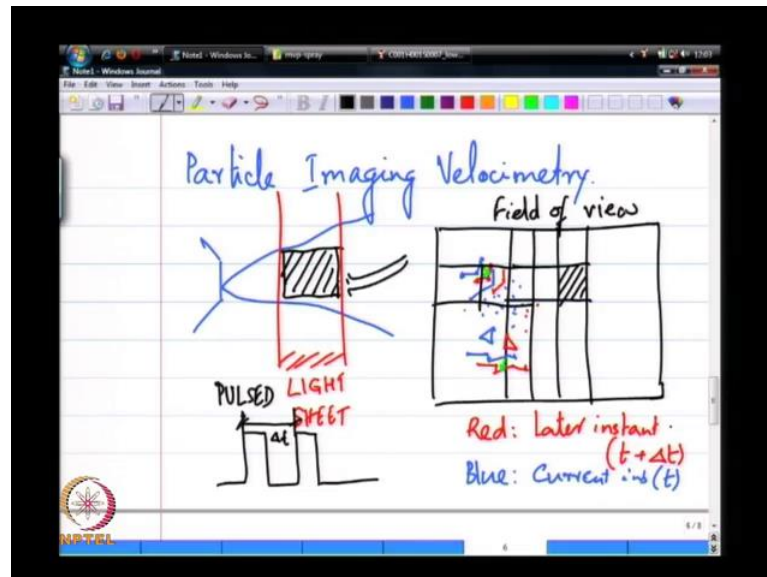 Note1 - Windows Jo...
mvp spray
12:03
Note1 - Windows Journal
File Edit View Insert Actions Tools Help
Particle Imaging Velocimetry.
Field of view
PULSED
LIGHT
SHEET
Δt
Red: Later instant.
(t + Δt)
Blue: Current ins (t)
NPTEL
6 / 8
6